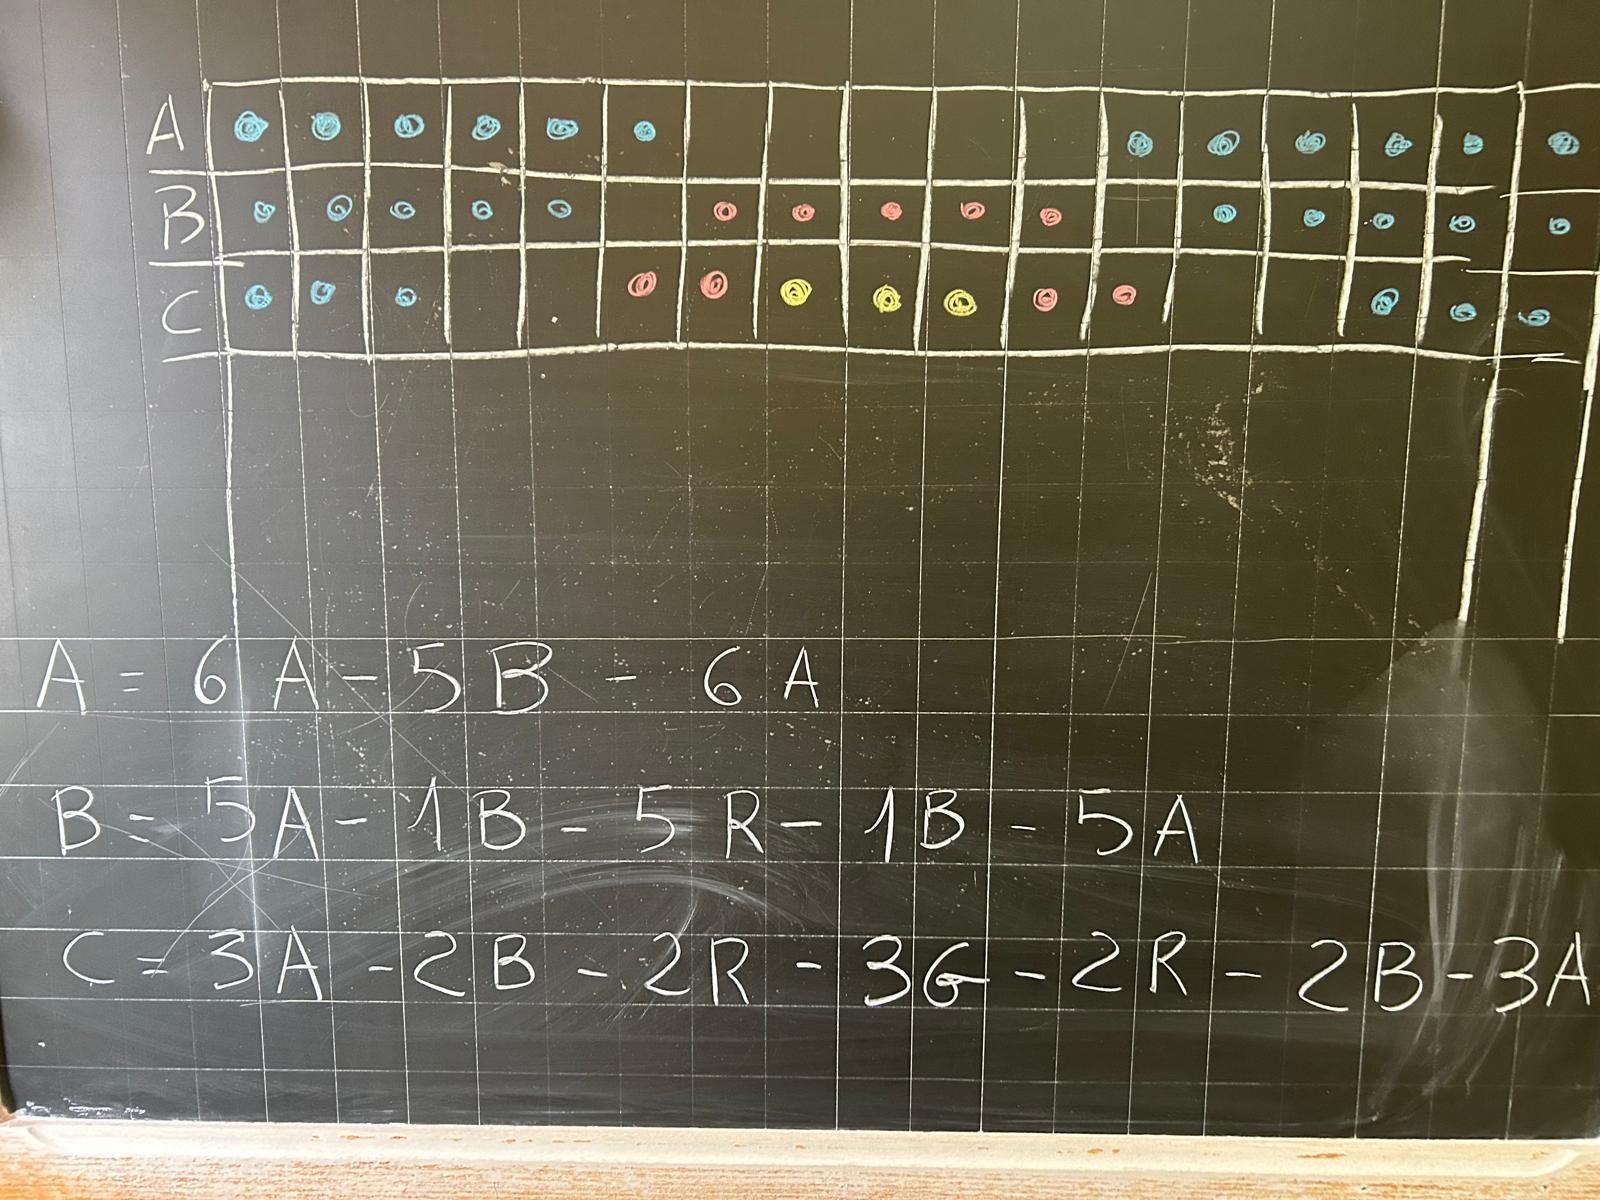 A
B
C
A = 6 A - 5 B - 6 A
B = 5 A - 1 B - 5 R - 1 B - 5 A
C = 3 A - 2 B - 2 R - 3 G - 2 R - 2 B - 3 A